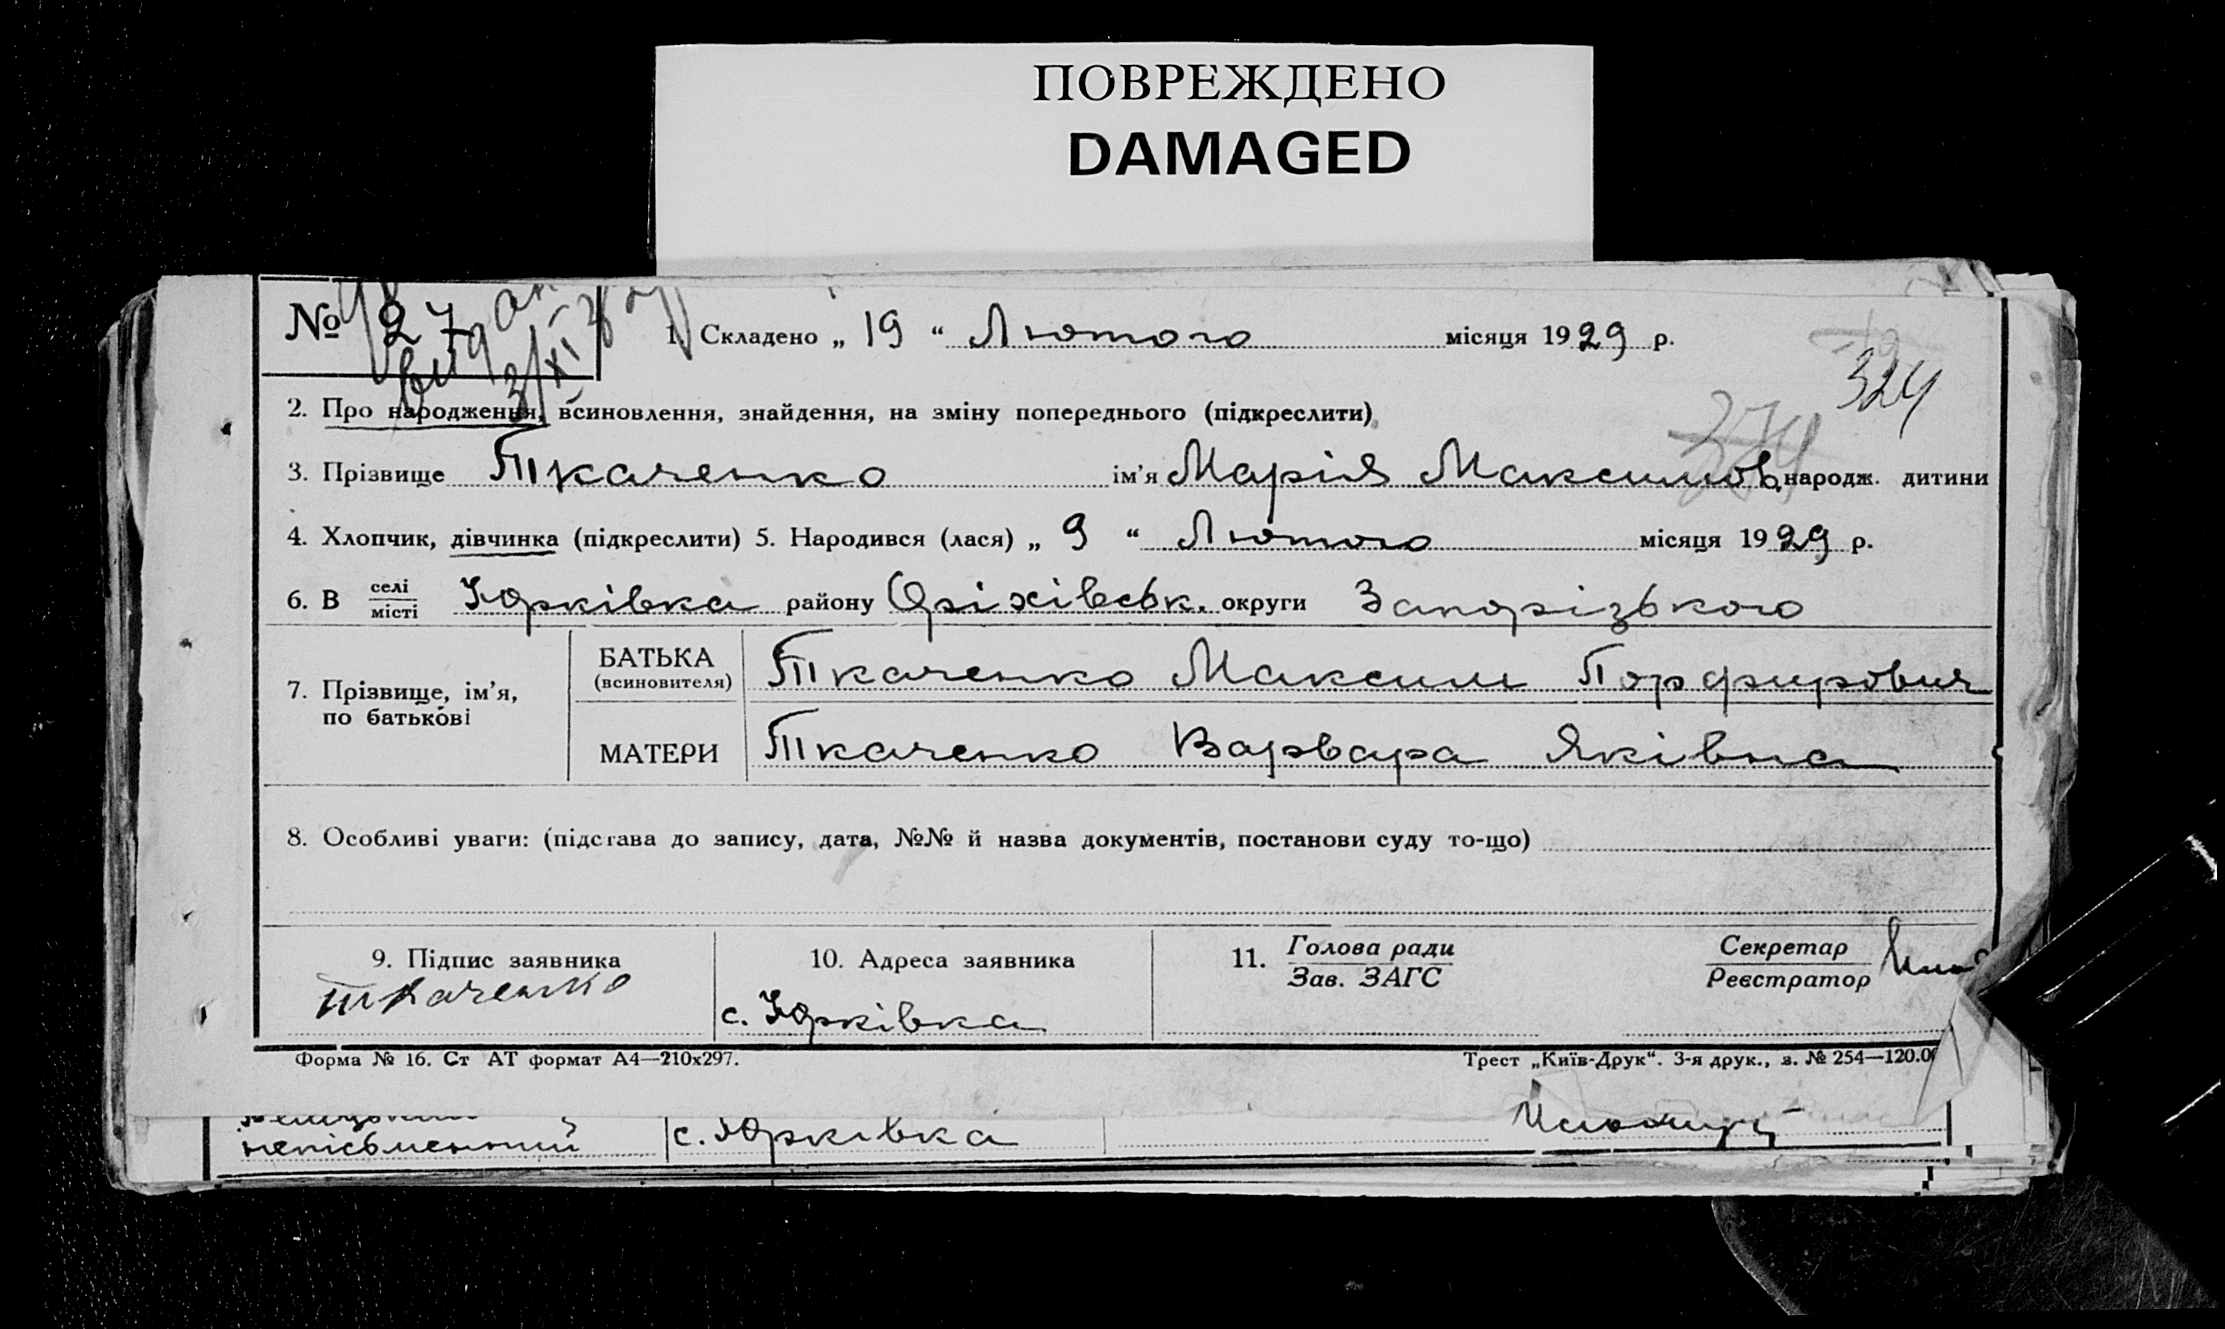 ПОВРЕЖДЕНО
DAMAGED
№ 27
1. Складено „ 19 “ Лютого місяця 1929 р.
324
2. Про народження, всиновлення, знайдення, на зміну попереднього (підкреслити)
374
3. Прізвище Ткаченко ім’я Марія Максимов. народж. дитини
4. Хлопчик, дівчинка (підкреслити) 5. Народився (лася) „ 9 “ Лютого місяця 1929 р.
6. В селі місті Юрківка району Оріхівськ. округи Запорізького
7. Прізвище, ім’я, по батькові
БАТЬКА (всиновителя) Ткаченко Максим Порфирович
МАТЕРИ Ткаченко Варвара Яківна
8. Особливі уваги: (підстава до запису, дата, №№ й назва документів, постанови суду то-що)
9. Підпис заявника
Ткаченко
10. Адреса заявника
с. Юрківка
11. Голова ради
Зав. ЗАГС
Секретар
Реєстратор
Форма № 16. Ст АТ формат А4—210х297.
Трест „Київ-Друк“. 3-я друк., з. № 254—120.0
неписьменний с. Юрківка